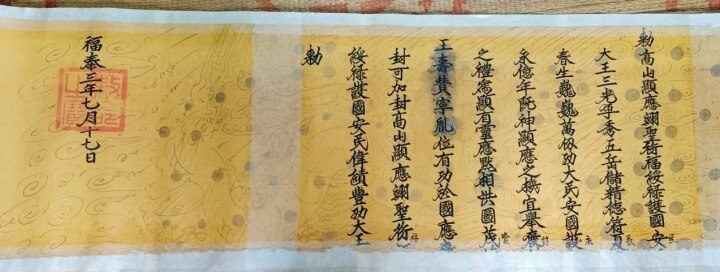 勅高山顯應翊聖衍福綏祿護國安民
大王三光孕秀五岳儲精德符夏長
春生巍巍萬仞功大民安國
永億年既神顯應之宜舉褒封
之禮寫顯有靈應默相洪圖茂
王壽賛寧胤位有功於國應
封可加封高山顯應翊聖衍福
綏祿護國安民偉績豐功大王
勅
福泰三年七月十七日